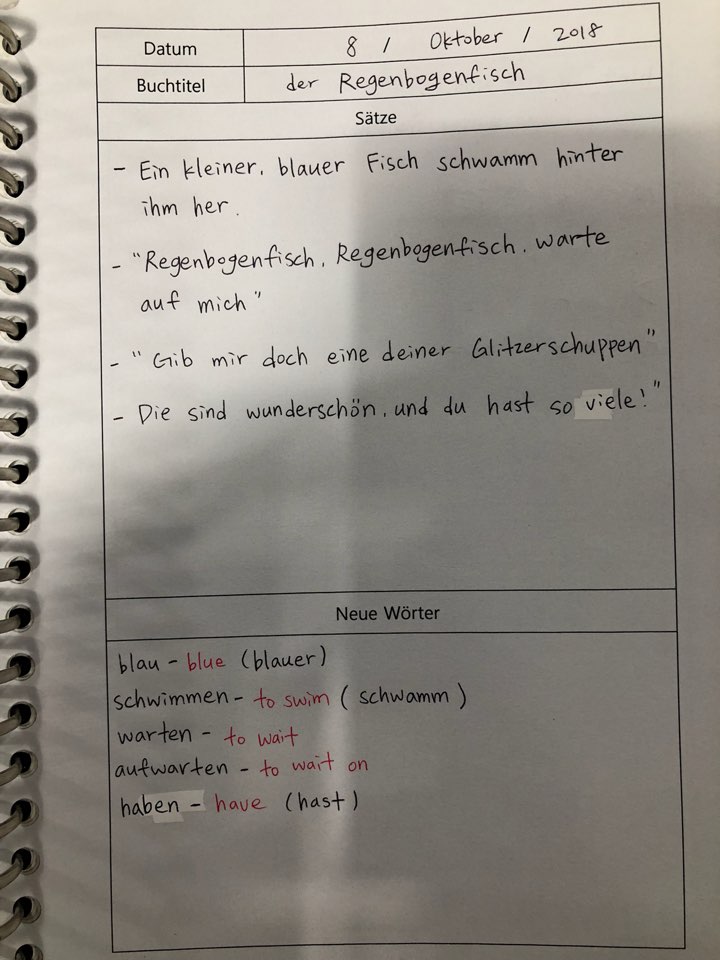 Datum 8 / Oktober / 2018
Buchtitel der Regenbogenfisch
Sätze
- Ein kleiner, blauer Fisch schwamm hinter
ihm her.
- "Regenbogenfisch, Regenbogenfisch, warte
auf mich"
- "Gib mir doch eine deiner Glitzerschuppen"
- Die sind wunderschön, und du hast so viele!"
Neue Wörter
blau - blue (blauer)
schwimmen - to swim (schwamm)
warten - to wait
aufwarten - to wait on
haben - have (hast)